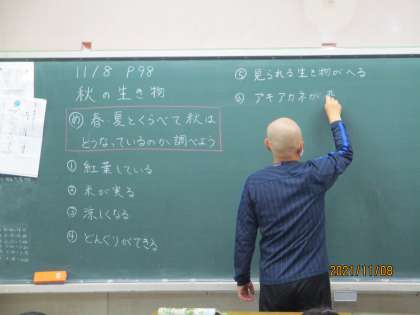 11/8 P98
秋の生き物
め 春・夏とくらべて秋は
どうなっているのか調べよう
① 紅葉している
② 木が実る
③ 涼しくなる
④ どんぐりができる
⑤ 見られる生き物がへる
⑥ アキアカネが
2021/11/08